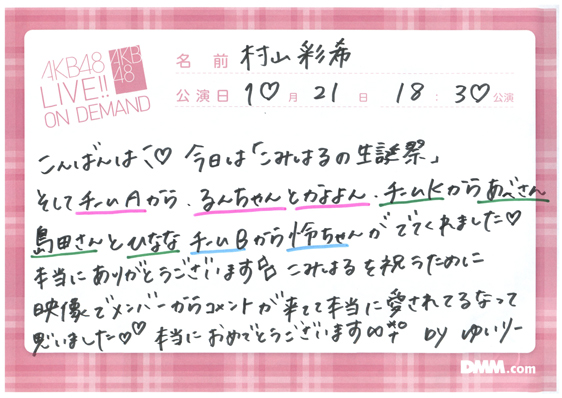 AKB48
LIVE!!
ON DEMAND
AKB
48
名 前 村山彩希
公演日 10月 21日 18:30公演
こんばんは♡ 今日は「こみはるの生誕祭」
そしてチームAから、るんちゃんとかよよん、チームKからあべさん
島田さんとひなな チームBから怜ちゃんがでてくれました♡
本当にありがとうございます こみはるを祝うために
映像でメンバーからコメントが来てて本当に愛されてるなって
思いました♡♡ 本当におめでとうございます by ゆいりー
DMM.com